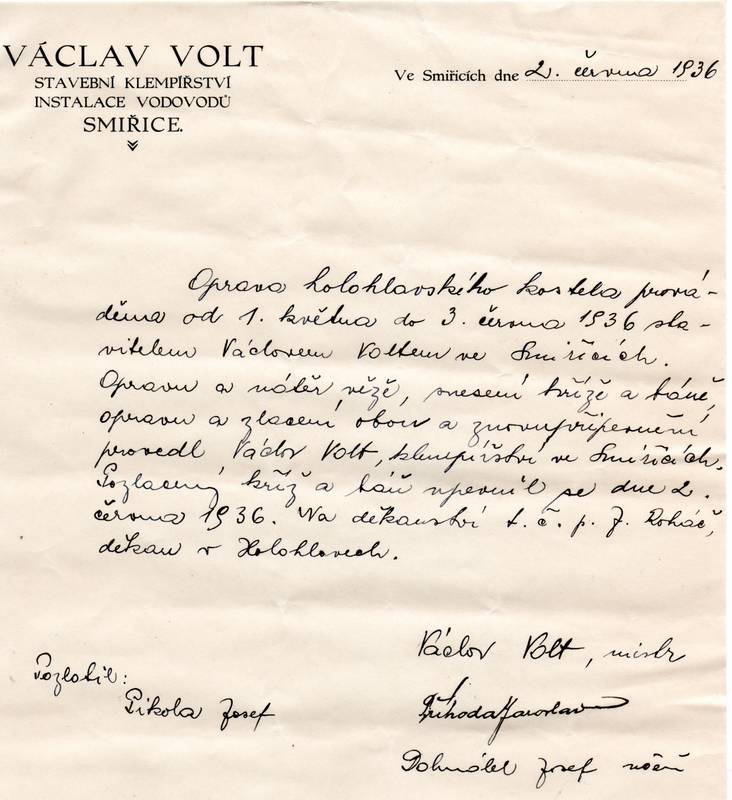 VÁCLAV VOLT
STAVEBNÍ KLEMPÍŘSTVÍ
INSTALACE VODOVODŮ
SMIŘICE.
Ve Smiřicích dne 2. června 1936
Oprava holohlavského kostela prová-
děna od 1. května do 3. června 1936 sta-
vitelem Václavem Voltem ve Smiřicích.
Opravu a nátěr věže, snesení kříže a báně,
opravu a zlacení obou a znovupřipevnění
provedl Václav Volt, klempířství ve Smiřicích.
Pozlacený kříž a báň upevnil se dne 2.
června 1936. Na děkanství t. č. p. J. Roháč,
děkan v Holohlavech.
Václav Volt, mistr
Pozlatil:
Pikola Josef
Příhoda Jaroslav
Josef učeň